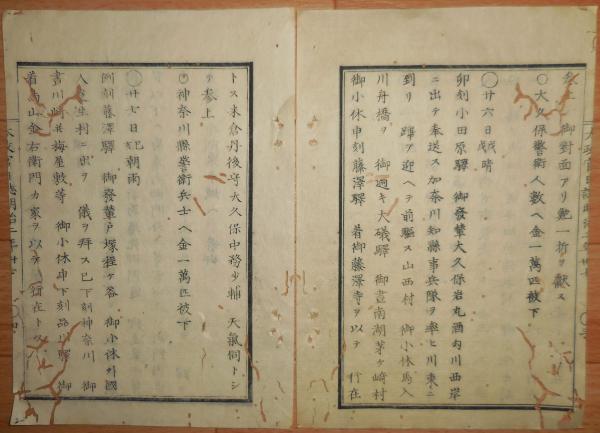 参上　御對面アリ鮑一折ヲ獻ス
○大久保警衛人數ヘ金一萬匹被下
○廿六日戊戌晴
卯刻小田原驛　御發輦大久保岩丸酒匂川西岸
ニ出テ奉送ス加奈川知縣事兵隊ヲ率ヒ川東ニ
到リ　蹕ヲ迎ヘテ前驅ス山西村　御小休馬入
川舟橋ヲ　御過キ大磯驛　御晝南湖茅ヶ崎村
御小休申刻藤澤驛　着御藤澤寺ヲ以テ　行在
トス米倉丹後守大久保中務少輔　天氣伺トシ
テ参上
○神奈川縣警衛兵士ヘ金一萬匹被下
○廿七日己亥朝雨
卯刻藤澤驛　御發輦戸塚程ヶ谷　御小休外國
人生村ニ出テ　儀ヲ拜ス巳下刻神奈川　御
晝川崎並梅屋敷等　御小休申下刻品川驛　御
着鳥山金右衛門カ家ヲ以テ　行在トス
太政官日誌明治二年